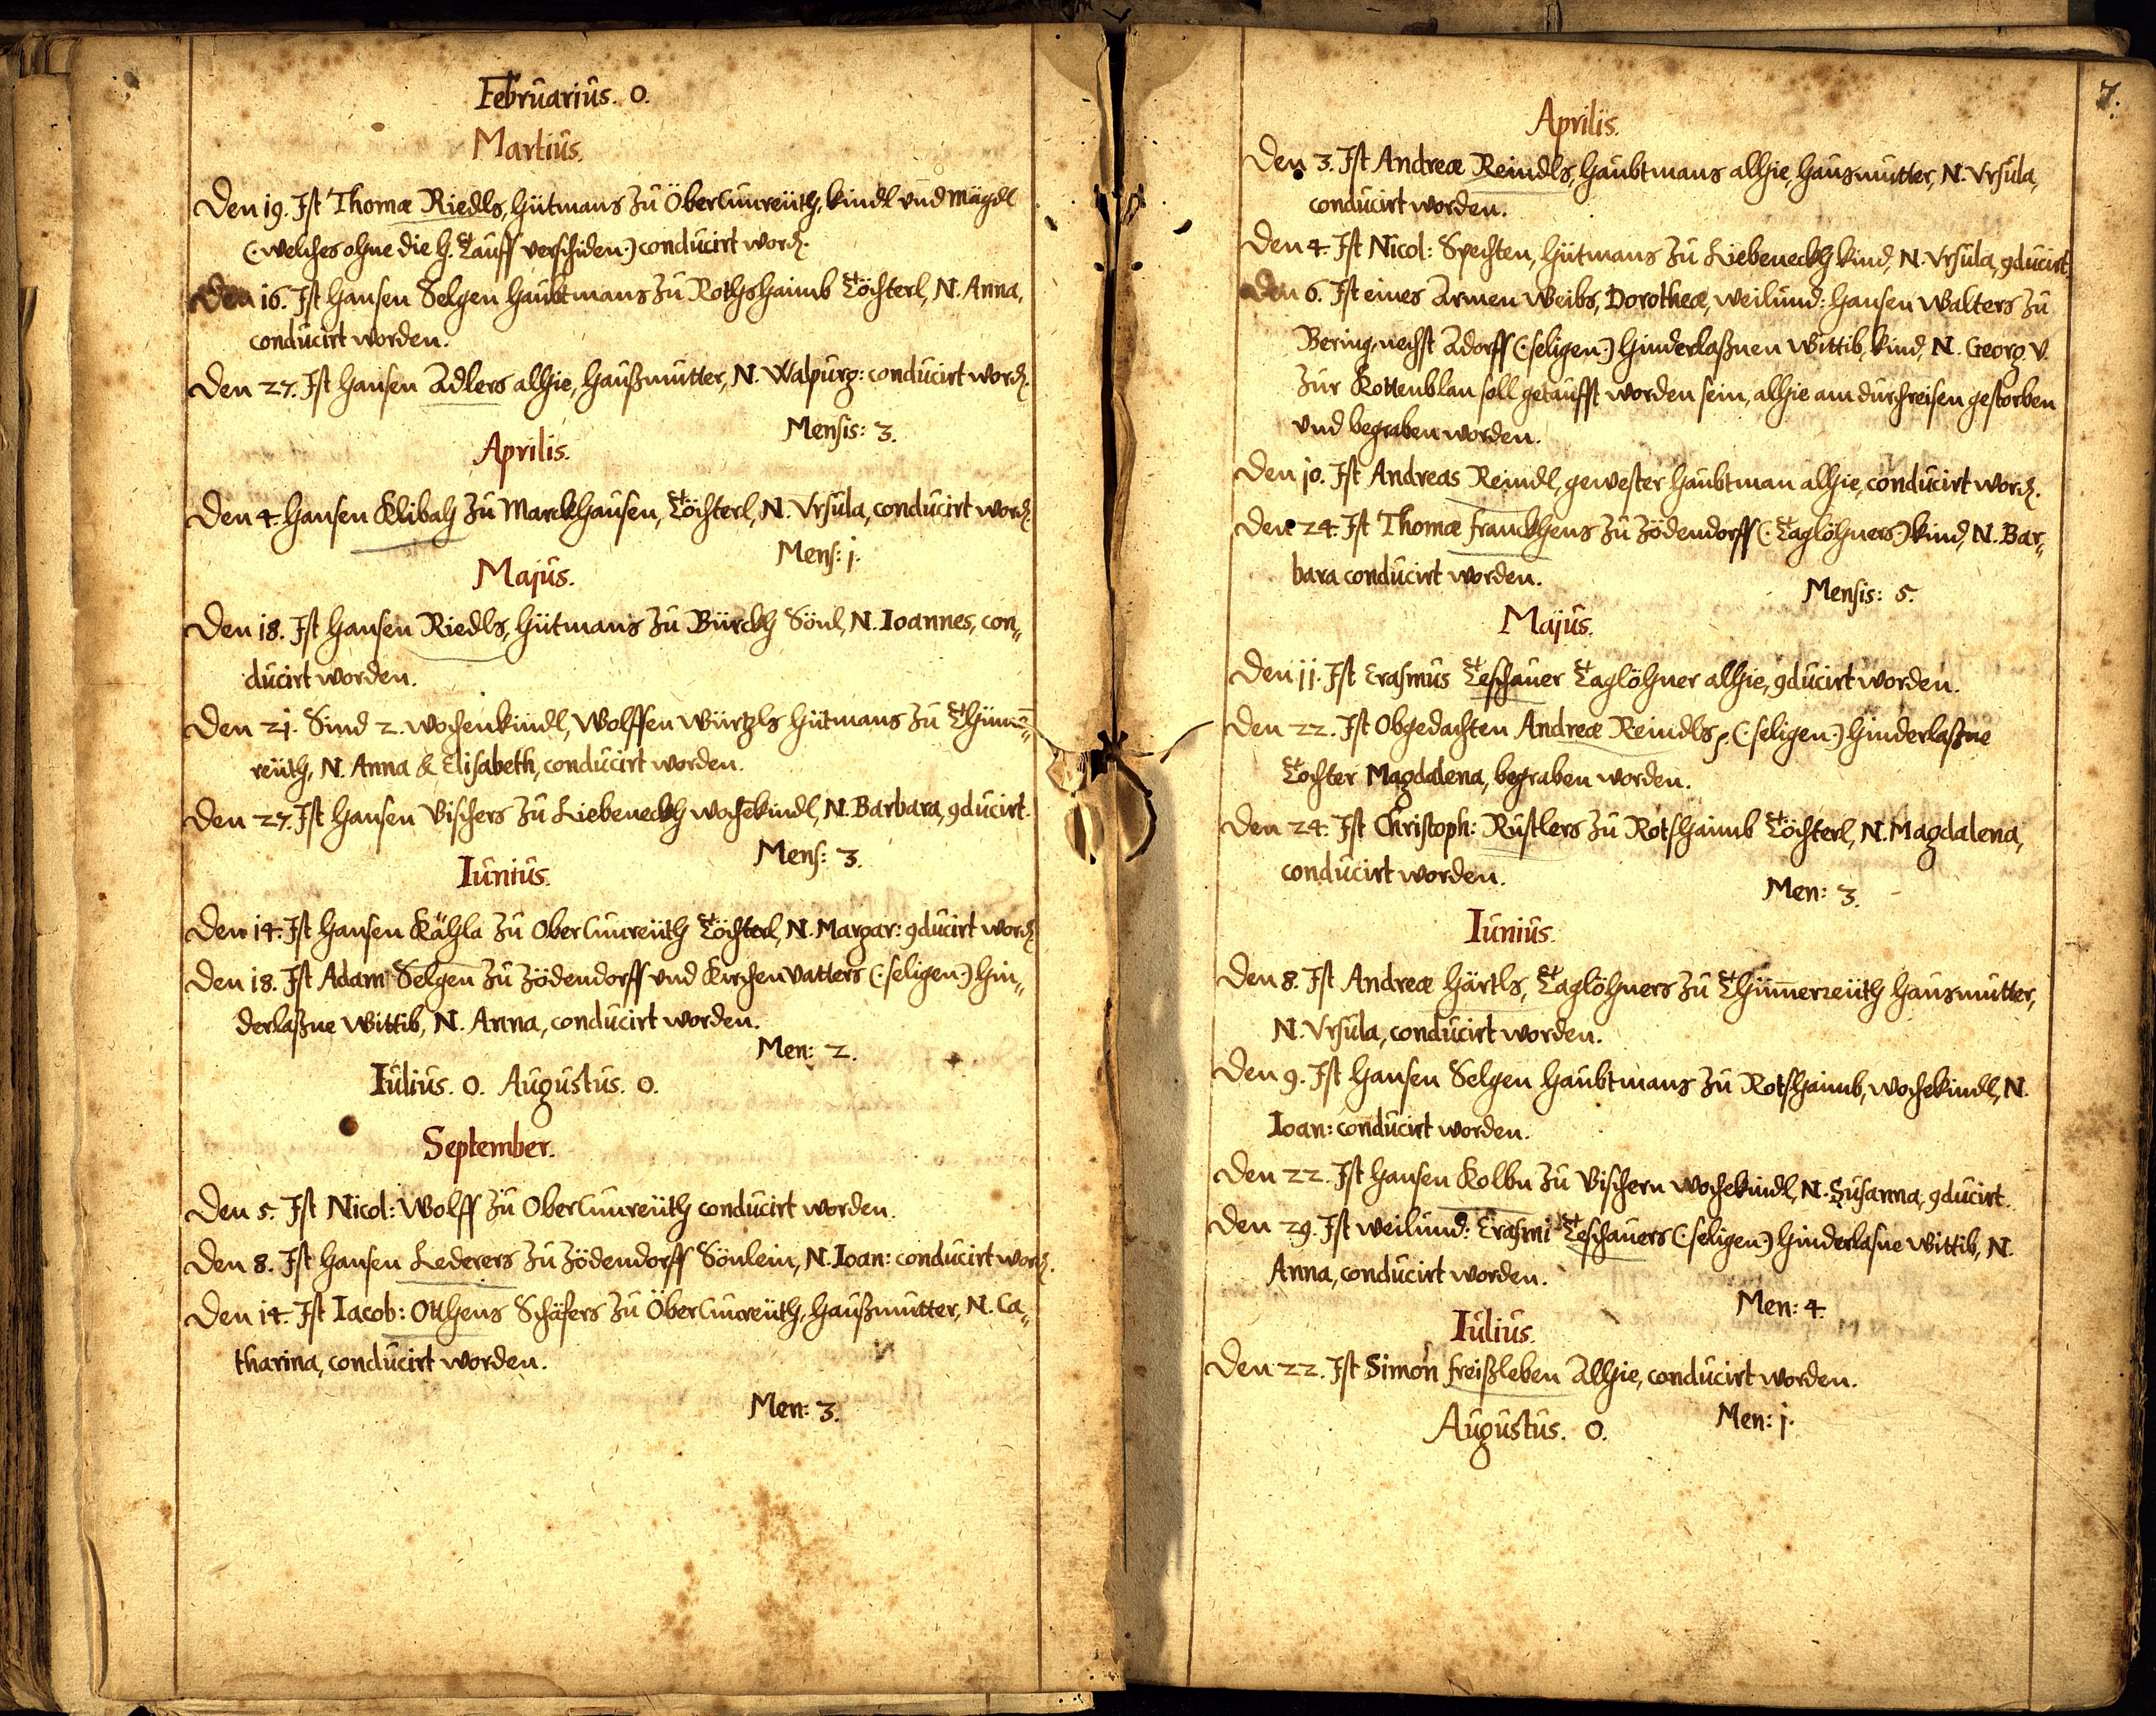 Februarius. 0.
Martius.
Den 19. Ist Thomæ Riedls, hütmans zu Ober Cunreüth, kindl und Mägdl
(: welches ohne die H. Tauff verschiden :) conducirt word.
Den 16. Ist Hansen Selgen haubtmans zu Rothshaimb Töchterl, N. Anna,
conducirt worden.
Den 27. Ist Hansen Adlers alhie, Haußmutter, N. Walpurg: conducirt word.
Mensis: 3.
Aprilis.
Den 4. Hansen Klibah zu Marckhausen, Töchterl, N. Vrsula, conducirt word.
Mens: 1.
Majus.
Den 18. Ist Hansen Riedls, hütmans zu Bürckh Sönl, N. Ioannes, con„
ducirt worden.
Den 21. Sind 2. wochenkindl, Wolffen Würtzls hütmans zu Thüm̄„
reüth, N. Anna & Elisabeth, conducirt worden.
Den 27. Ist Hansen Vischers zu Liebeneckh wochēkindl, N. Barbara, 9ducirt.
Mens: 3.
Iunius.
Den 14. Ist Hansen Kähla zu Ober Cunreüth Töchterl, N. Margar: 9ducirt word.
Den 18. Ist Adam Selgen zu Zödendorff und Kirchenvatters (: seligen :) hin„
derlaßne Wittib, N. Anna, conducirt worden.
Men: 2.
Iulius. 0. Augustus. 0.
September.
Den 5. Ist Nicol: Wolff zu Ober Cunreüth conducirt worden.
Den 8. Ist Hansen Lederers zu Zödendorff Sönlein, N. Ioan: conducirt word.
Den 14. Ist Iacob: Otthens Schäfers zu Ober Cunreüth, Haußmutter, N. Ca„
tharina, conducirt worden.
Men: 3.
7.
Aprilis.
Den 3. Ist Andreæ Reindls, haubtmans alhie, Hausmutter, N. Vrsula,
conducirt worden.
Den 4. Ist Nicol: Spechten, hütmans zu Liebeneckh kind, N. Vrsula, 9ducirt.
Den 6. Ist eines Armen Weibs, Dorotheæ, weilund: Hansen Walters zu
Bering, nechst Adorff (: seligen :) hinderlaßnen Wittib, kind, N. Georg. v.
Zur Rottenblan soll getaufft worden sein, alhie am durchreisen gestorben
und begraben worden.
Den 10. Ist Andreas Reindl, gewester haubtman alhie, conducirt word.
Den 24. Ist Thomæ Franckhens zu Zödendorff (: Taglöhners :) kind, N. Bar„
bara conducirt worden.
Mensis: 5.
Majus.
Den 11. Ist Erasmus Teschauer Taglöhner alhie, 9ducirt worden.
Den 22. Ist Obgedachten Andreæ Reindls, (: seligen :) hinderlaßne
Tochter Magdalena, begraben worden.
Den 24. Ist Christoph: Rustlers zu Rotshaimb Töchterl, N. Magdalena,
conducirt worden.
Men: 3.
Iunius.
Den 8. Ist Andreæ Härtls, Taglöhners zu Thüm̄erreüth Hausmutter,
N. Vrsula, conducirt worden.
Den 9. Ist Hansen Selgen haubtmans zu Rotshaimb, wochēkindl, N.
Ioan: conducirt worden.
Den 22. Ist Hansen Kolbn zu Vischern wochēkindl, N. Susanna, 9ducirt.
Den 29. Ist weilund: Erasmi Teschauers (: seligen :) hinderlasne Wittib, N.
Anna, conducirt worden.
Men: 4.
Iulius.
Den 22. Ist Simon Freißleben Alhie, conducirt worden.
Men: 1.
Augustus. 0.